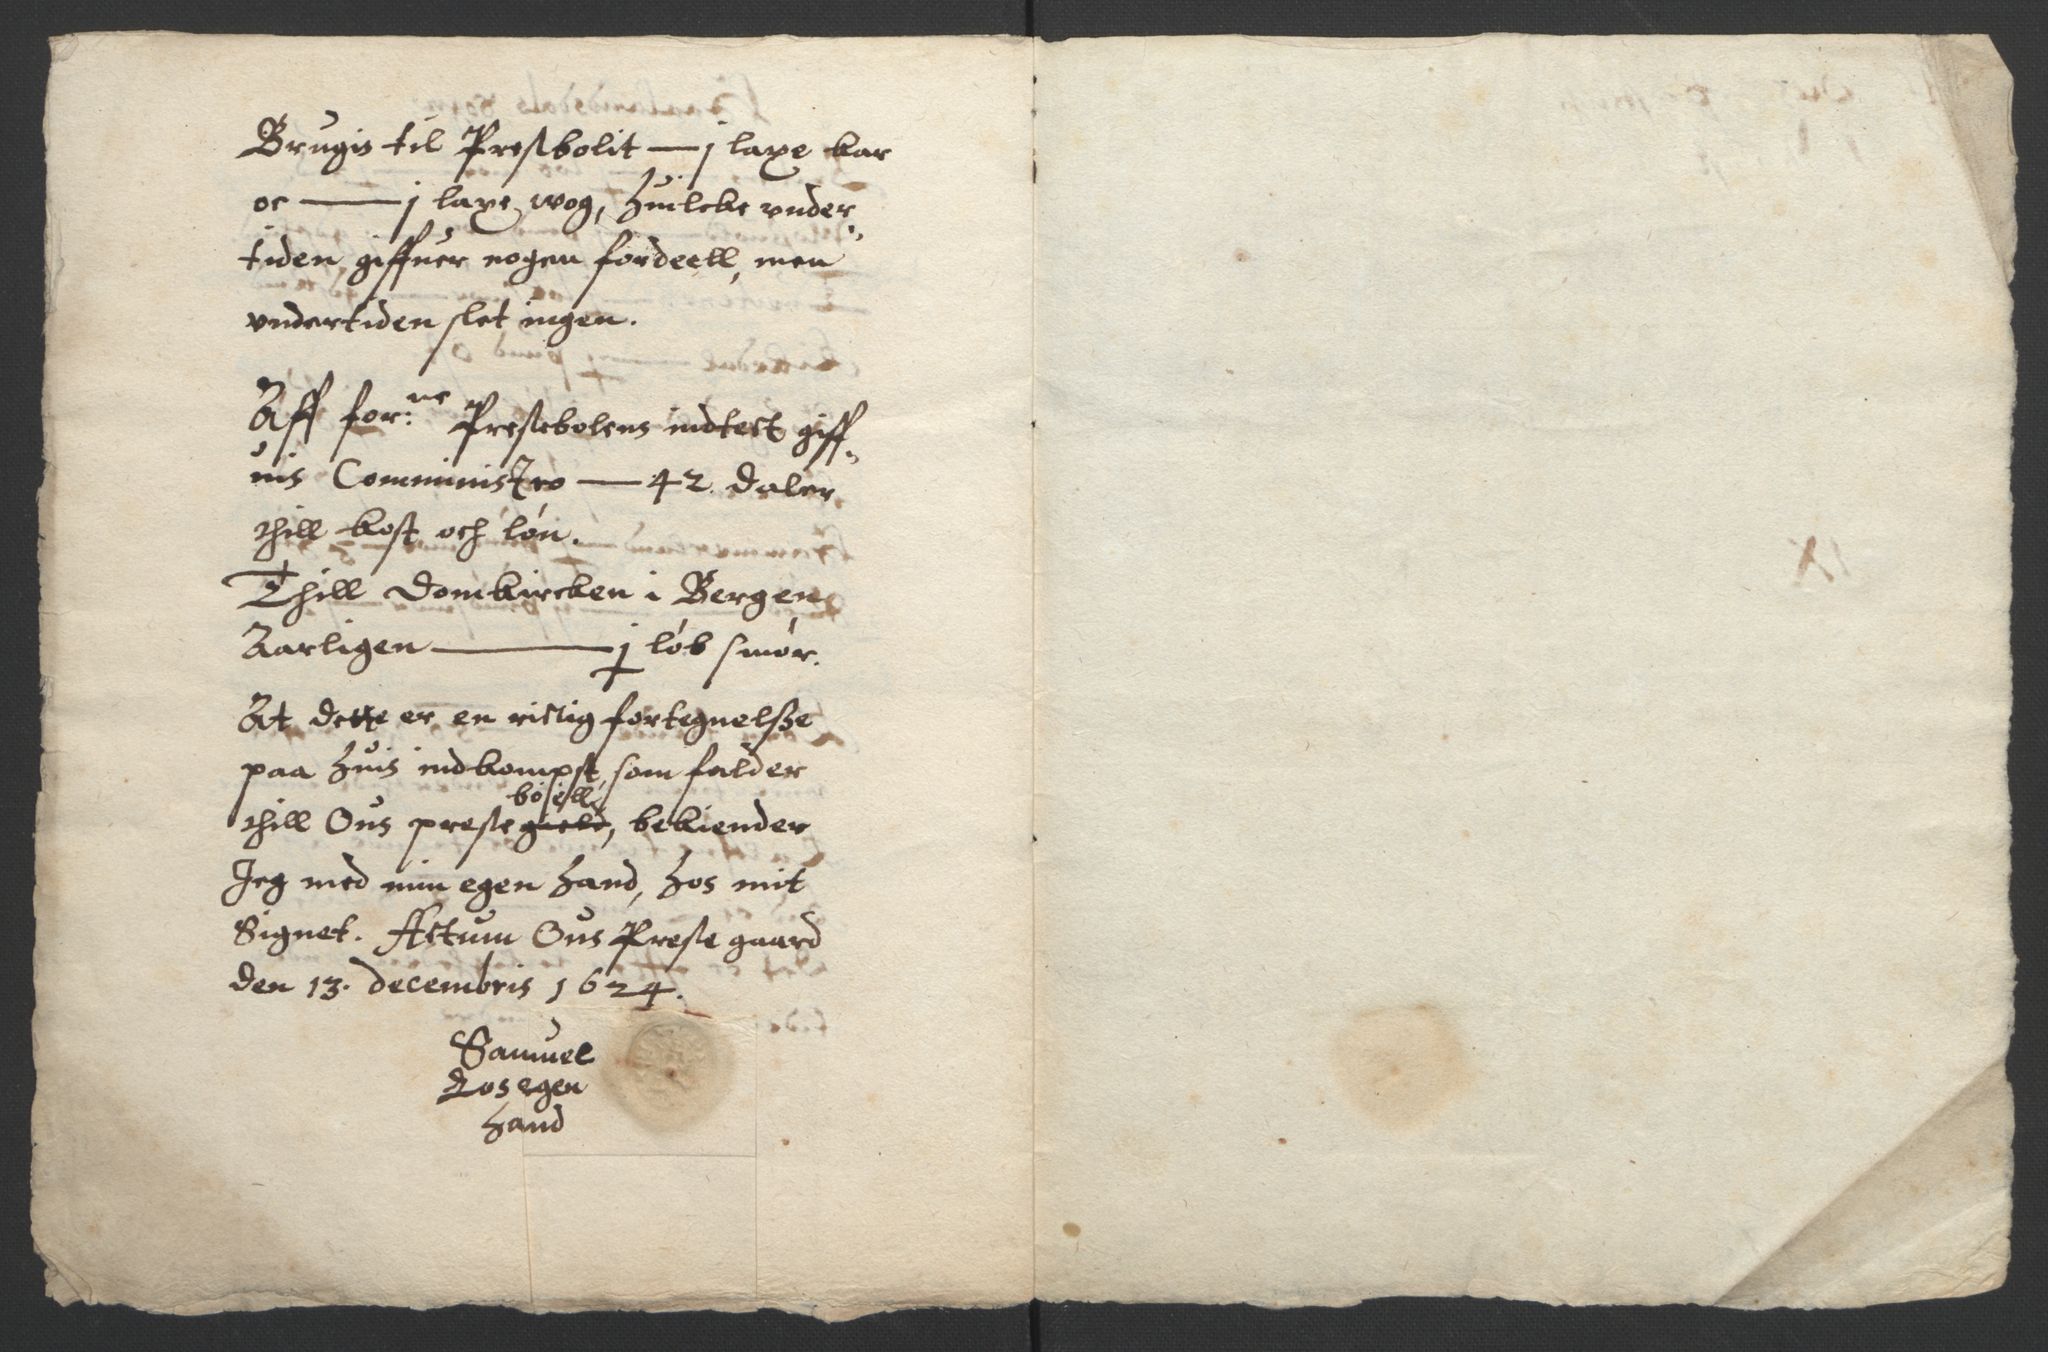 Brugis til Presbolit — j laxe kar
oc — j laxe wog, huilcke vnder,,
tiden giffuer nogen fordeell, men
vndertiden slet ingen.
Aff for:ne Presebolens indtect giff,,
uis Comministro — 42 daler
thill kost och løn.
Thill Domkircken i Bergen
Aarligen — j løb smør.
At dette er en rictig fortegnelsze
paa huis indkompst, som falder
bosell
thill Ous prese gield, bekiender
Jeg med min egen hand, hos mit
Signet. Actum Ous Prese gaard
den 13. decembris 1624.
Samuel
egen
hand